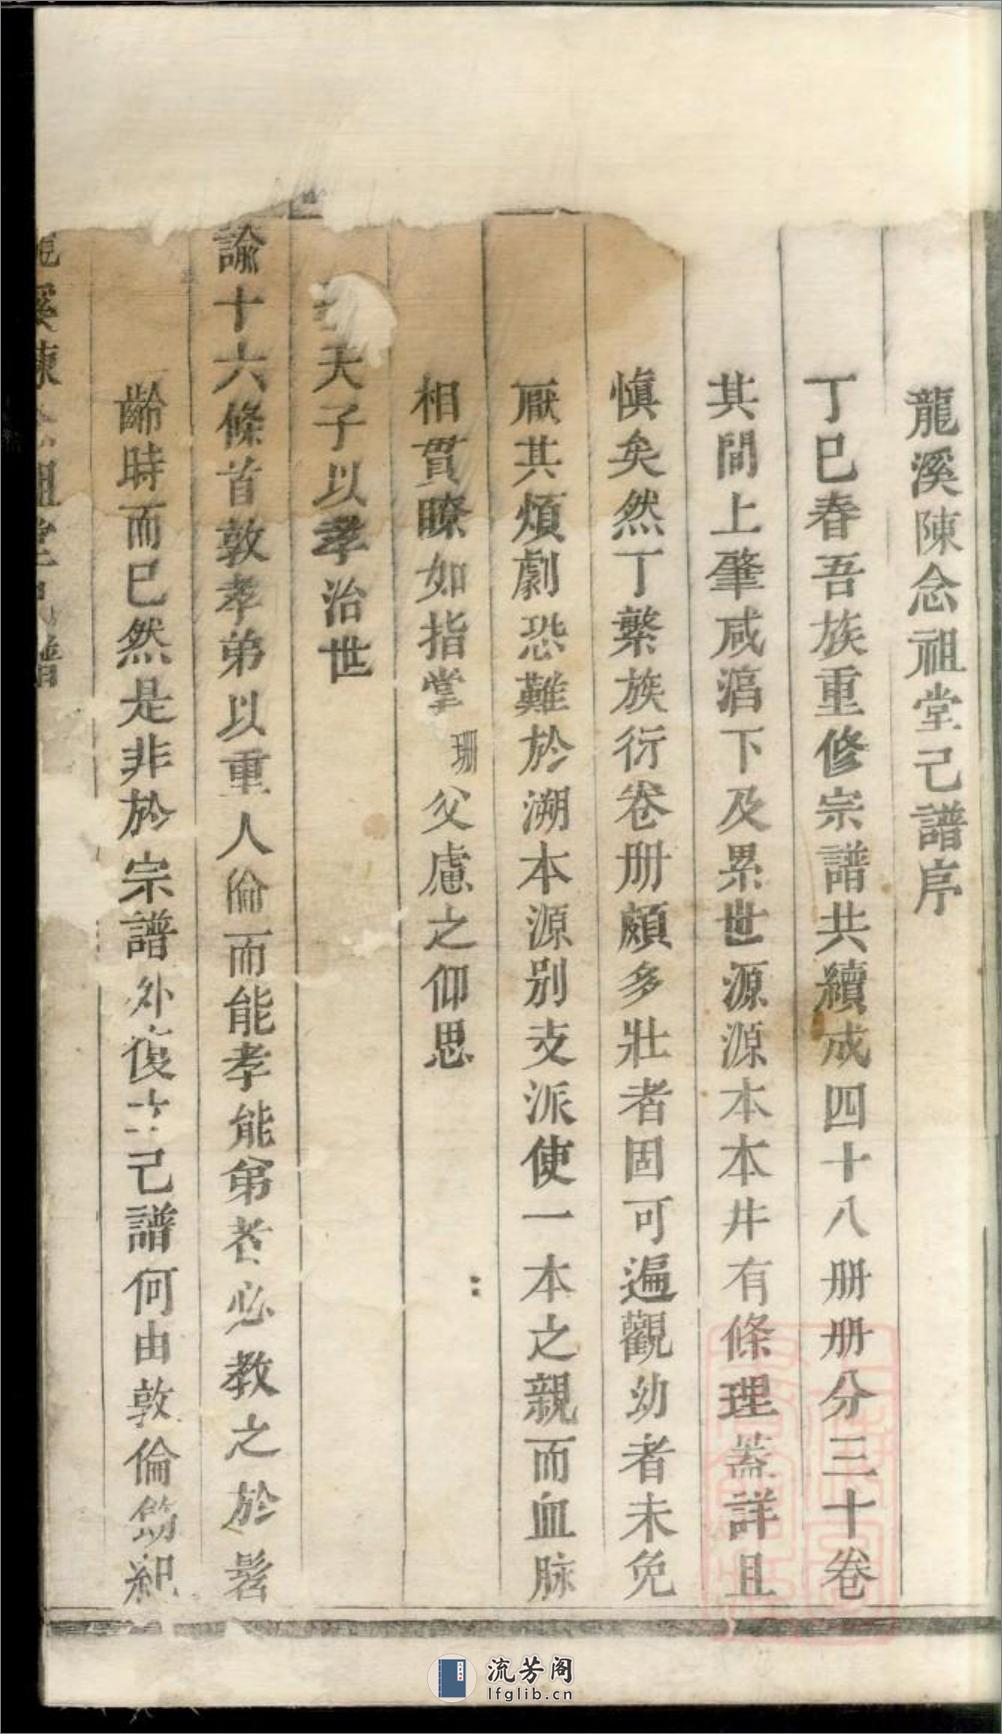 龍溪陳念祖堂己譜序
丁巳春吾族重修宗譜共續成四十八册册分三十卷
其間上肇咸淊下及累世源源本本井有條理蓋詳且
慎矣然丁繁族衍卷册頗多壯者固可遍觀幼者未免
厭其煩劇恐難於溯本源别支派使一本之親而血脉
相貫瞭如指掌珊父慮之仰思
天子以孝治世
諭十六條首敦孝弟以重人倫而能孝能弟者必教之於髫
齡時而已然是非於宗譜外復立己譜何由敦倫飭紀
溪陳念祖堂己譜
流芳阁
lfglib.cn